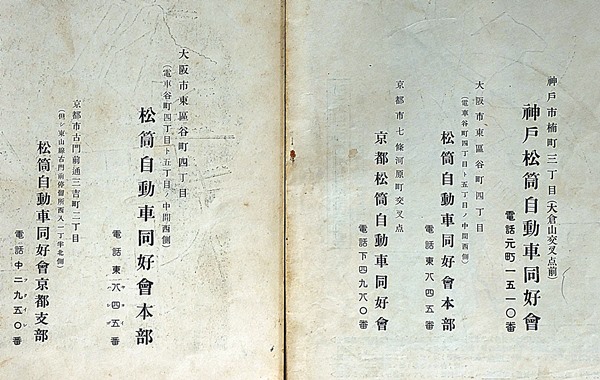 神戶市楠町三丁目(大倉山交叉点前)
神戶松筒自動車同好會
電話元町一五一〇番
大阪市東區谷町四丁目
(電車谷町四丁目ト五丁目ノ中間西側)
松筒自動車同好會本部
電話東八四五番
京都市七條河原町交叉点
京都松筒自動車同好會
電話下四九八〇番
大阪市東區谷町四丁目
(電車谷町四丁目ト五丁目ノ中間西側)
松筒自動車同好會本部
電話東八四五番
京都市古門前通三吉町二丁目
(但シ東山線古門前停留所西入一丁半北側)
松筒自動車同好會京都支部
電話中二九五〇番